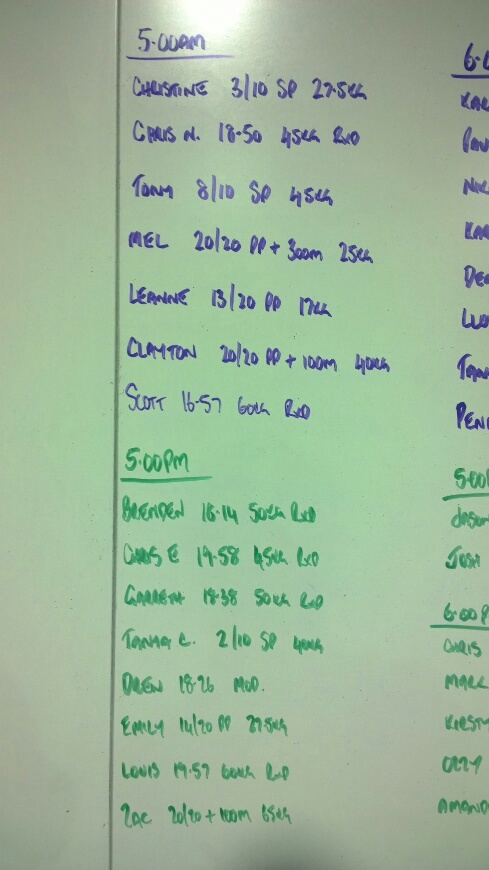 5.00AM
CHRISTINE 3/10 SP 27.5KG
CHRIS N. 18.50 45KG RXD
TONY 8/10 SP 45KG
MEL 20/20 PP + 300M 25KG
LEANNE 13/20 PP 17KG
CLAYTON 20/20 PP + 100M 40KG
SCOTT 16.57 60KG RXD
5.00PM
BRENDEN 18.14 50KG RXD
CHRIS E 19.58 45KG RXD
GARRETH 18.38 50KG RXD
C. 2/10 SP 40KG
DREN 18.26 MOD.
EMILY 14/20 PP 27.5KG
LOUIS 19.57 60KG RXD
ZAC 20/20 + 100M 65KG
6.0
KAR
PAU
NIK
KAR
DE
LLO
TAN
PEN
5.00
JASON
JOSH
6.00P
CHRIS
MARK
KIRSTY
OZZY
AMAND